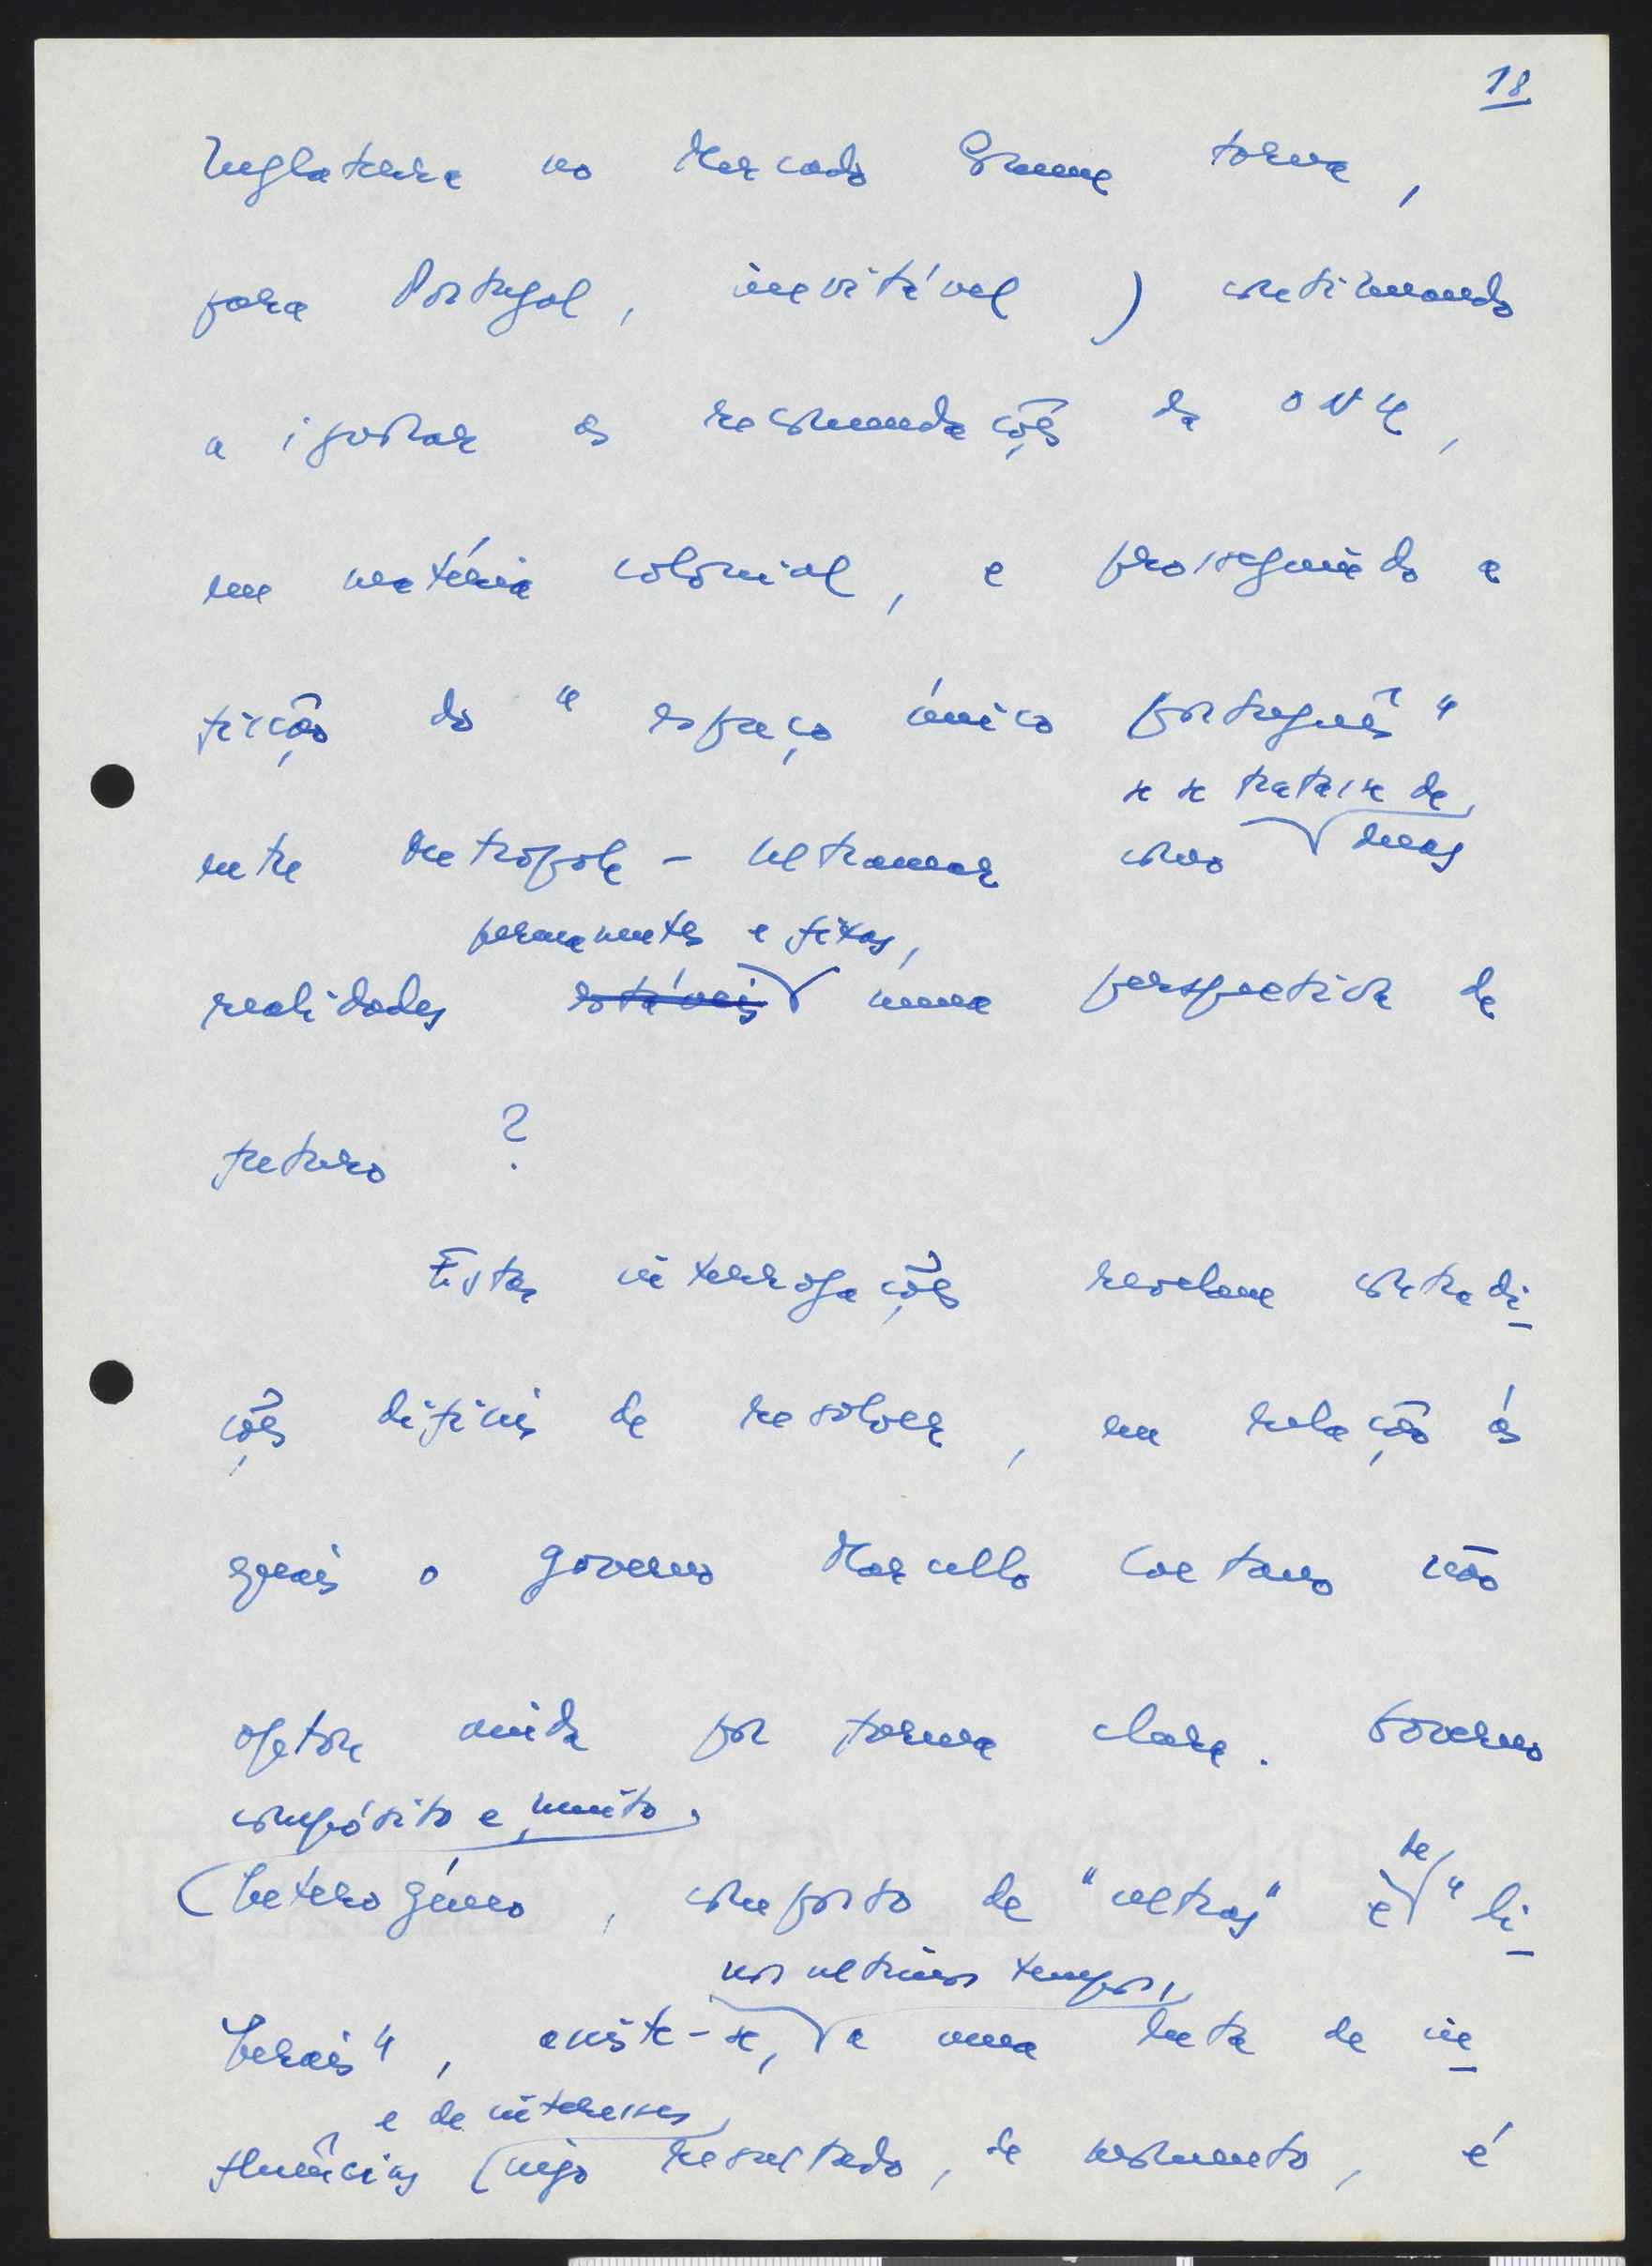 18
Inglaterra no Mercado Comum torna,
para Portugal, inevitável) continuando
a ignorar as recomendações da ONU,
em matéria colonial, e prosseguindo a
ficção do "espaço único português"
se se tratasse de
entre Metrópole - Ultramar como duas
permanentes e fixas,
realidades estáveis numa perspectiva de
futuro ?
Estas interrogações revelam contradi
ções difíceis de resolver, em relação às
quais o governo Marcello Caetano não
optou ainda por forma clara. Governo
compósito e muito
heterogéneo, composto de "ultras" e "li
de
nos ultimos tempos,
berais", assiste-se, a uma luta de in
e de interesses
fluências cujo resultado, de momento, é